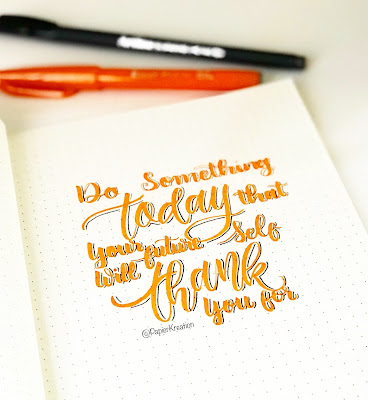 Do Something
today that
your future Self
Will thank
You for
@PapierKreation